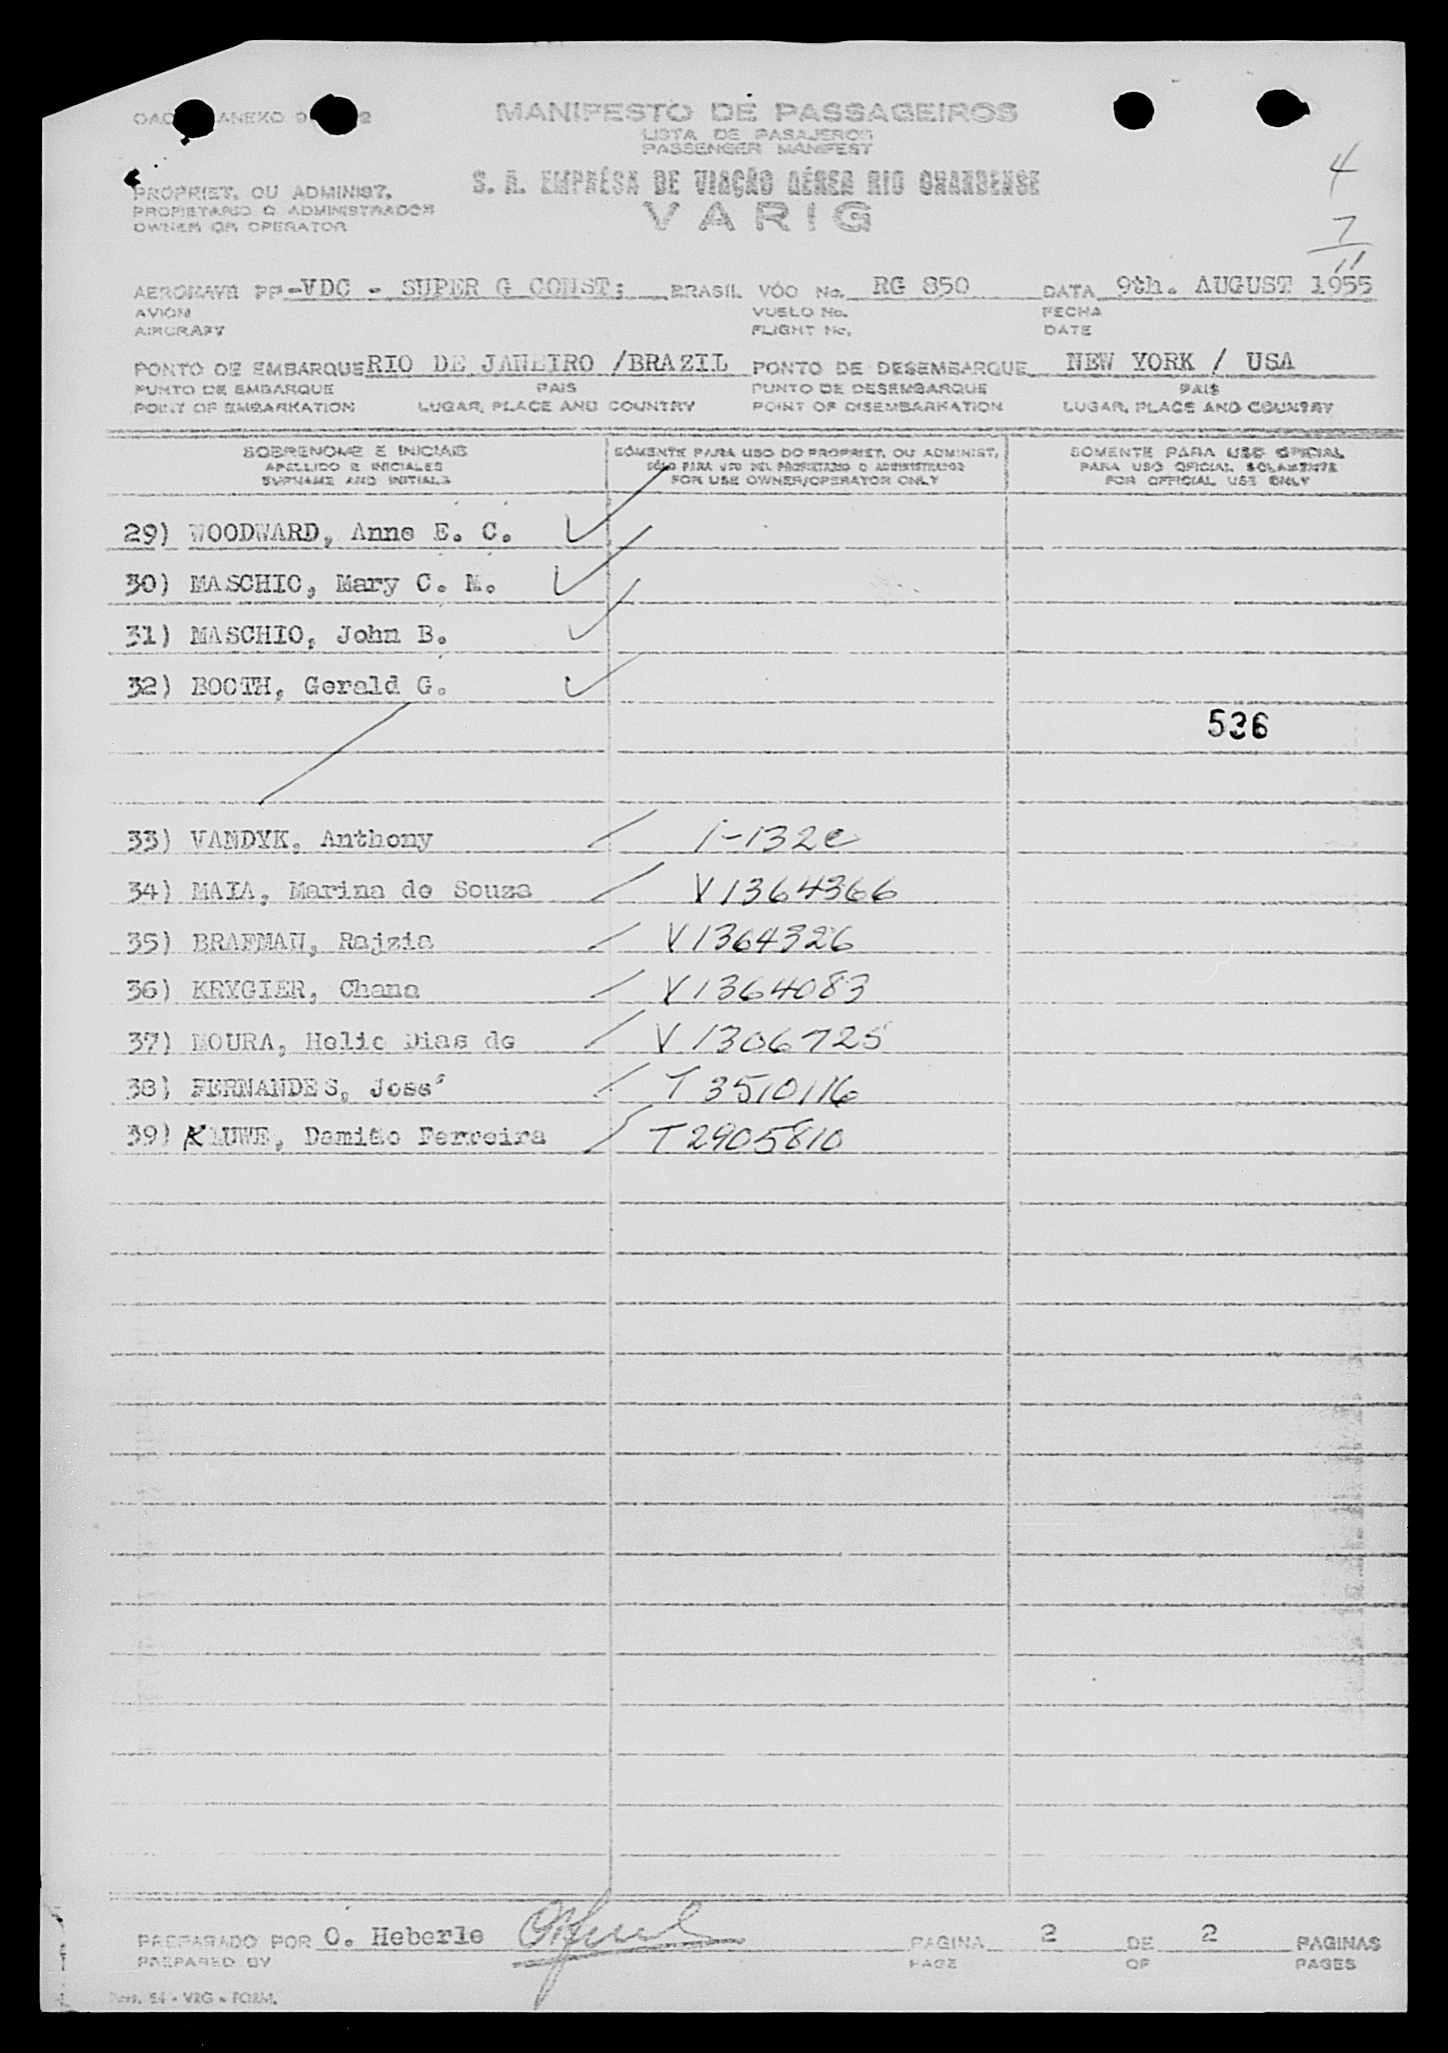 MANIFESTO DE PASSAGEIROS
LISTA DE PASAJEROS
PASSENGER MANIFEST
4
7
11
S. A. EMPRÊSA DE VIAÇÃO AÉREA RIO GRANDENSE
VARIG
PROPRIET. OU ADMINIST.
PROPIETARIO O ADMINISTRADOR
OWNER OR OPERATOR
AERONAVE PP-VDC - SUPER G CONST; BRASIL VÔO No. RG 850 DATA 9th. AUGUST 1955
AVION VUELO No. FECHA
AIRCRAFT FLIGHT No. DATE
PONTO DE EMBARQUE RIO DE JANEIRO /BRAZIL PONTO DE DESEMBARQUE NEW YORK / USA
PUNTO DE EMBARQUE PAIS PUNTO DE DESEMBARQUE PAIS
POINT OF EMBARKATION LUGAR, PLACE AND COUNTRY POINT OF DISEMBARKATION LUGAR, PLACE AND COUNTRY
SOBRENOME E INICIAIS SÓMENTE PARA USO DO PROPRIET. OU ADMINIST. SOMENTE PARA USO OFICIAL
APELLIDO E INICIALES SÓLO PARA USO DEL PROPIETARIO O ADMINISTRADOR PARA USO OFICIAL SOLAMENTE
SURNAME AND INITIALS FOR USE OWNER/OPERATOR ONLY FOR OFFICIAL USE ONLY
29) WOODWARD, Anne E. C.
30) MASCHIO, Mary C. M.
31) MASCHIO, John B.
32) BOOTH, Gerald G.
536
33) VANDYK, Anthony 1-132e
34) MAIA, Marina de Souza V1364366
35) BRAFMAN, Rajzia V1364326
36) KRYGIER, Chana V1364083
37) MOURA, Helio Dias de V1306725
38) FERNANDES, José T3510116
39) KLUWE, Damião Ferreira T2905810
PREPARADO POR O. Heberle PAGINA 2 DE 2 PAGINAS
PREPARED BY PAGE OF PAGES
54 - VRG - FORM.